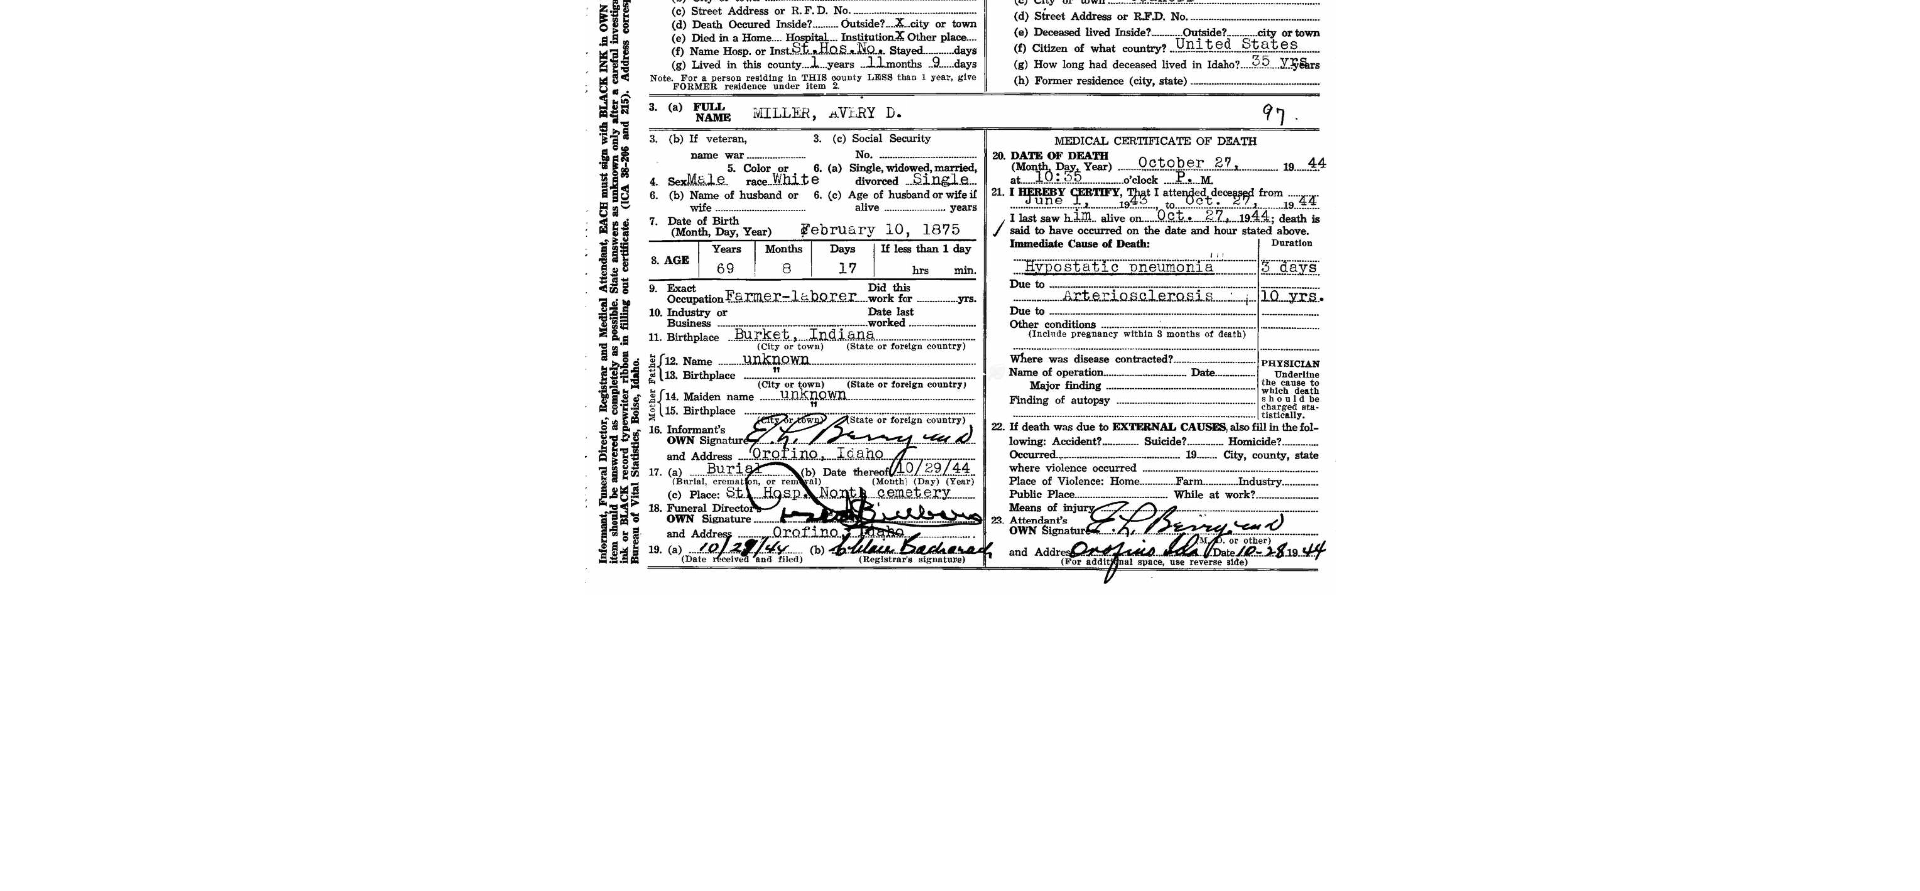 Informant, Funeral Director, Registrar and Medical Attendant, EACH must sign with BLACK INK in OWN
item should be answered as completely as possible. State answers as unknown only after a careful investiga
ink or BLACK record typewriter ribbon in filling out certificate. (ICA 38-206 and 215). Address corresp
Bureau of Vital Statistics, Boise, Idaho.
(c) Street Address or R.F.D. No.
(d) Death Occured Inside? Outside? X city or town
(e) Died in a Home Hospital Institution X Other place
(f) Name Hosp. or Inst. St.Hos.No. Stayed days
(g) Lived in this county 1 years 11 months 9 days
Note. For a person residing in THIS county LESS than 1 year, give
FORMER residence under item 2.
(d) Street Address or R.F.D. No.
(e) Deceased lived Inside? Outside? city or town
(f) Citizen of what country? United States
(g) How long had deceased lived in Idaho? 35 yrs years
(h) Former residence (city, state)
3. (a) FULL NAME MILLER, AVERY D. 97.
3. (b) If veteran, 3. (c) Social Security
name war No.
5. Color or 6. (a) Single, widowed, married,
4. Sex Male race White divorced Single
6. (b) Name of husband or 6. (c) Age of husband or wife if
wife alive years
7. Date of Birth
(Month, Day, Year) February 10, 1875
8. AGE Years Months Days If less than 1 day
69 8 17 hrs min.
9. Exact Did this
Occupation Farmer-laborer work for yrs.
10. Industry or Date last
Business worked
11. Birthplace Burket, Indiana
(City or town) (State or foreign country)
Father
12. Name unknown
13. Birthplace "
(City or town) (State or foreign country)
Mother
14. Maiden name unknown
15. Birthplace "
(City or town) (State or foreign country)
16. Informant's
OWN Signature E.L. Berry md
and Address Orofino, Idaho
17. (a) Burial (b) Date thereof 10/29/44
(Burial, cremation, or removal) (Month) (Day) (Year)
(c) Place: St. Hosp. North cemetery
18. Funeral Director's
OWN Signature
and Address Orofino, Idaho
19. (a) 10/29/44 (b) Bacharach
(Date received and filed) (Registrar's signature)
MEDICAL CERTIFICATE OF DEATH
20. DATE OF DEATH
(Month, Day, Year) October 27, 1944
at 10:35 o'clock P. M.
21. I HEREBY CERTIFY, That I attended deceased from
June 1, 1943 to Oct. 27, 1944
I last saw him alive on Oct. 27, 1944; death is
said to have occurred on the date and hour stated above.
Immediate Cause of Death: Duration
Hypostatic pneumonia 3 days
Due to
Arteriosclerosis 10 yrs.
Due to
Other conditions
(Include pregnancy within 3 months of death)
Where was disease contracted?
Name of operation Date
Major finding
Finding of autopsy
PHYSICIAN
Underline
the cause to
which death
should be
charged sta-
tistically.
22. If death was due to EXTERNAL CAUSES, also fill in the fol-
lowing: Accident? Suicide? Homicide?
Occurred 19 City, county, state
where violence occurred
Place of Violence: Home Farm Industry
Public Place While at work?
Means of injury
23. Attendant's
OWN Signature E.L. Berry md
(M. D. or other)
and Address Orofino Ida Date 10-28 1944
(For additional space, use reverse side)